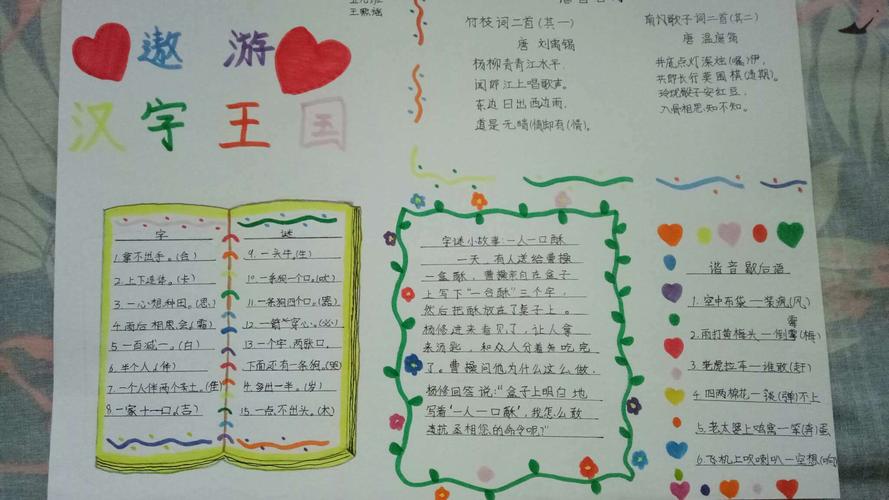 王熙瑶
遨游
汉字王国
竹枝词二首(其一)
唐 刘禹锡
杨柳青青江水平,
闻郎江上唱歌声。
东边日出西边雨,
道是无晴(情)却有(情)。
唐 温庭筠
井底点灯深烛(嘱)伊,
共郎长行莫围棋(违期)。
玲珑骰子安红豆,
入骨相思知不知。
字
1.拿不出手。(合)
2.上下连体。(卡)
3.一心想种田。(思)
4.雨后相思会(霜)
5.一百减一。(白)
6.半个人。(伴)
7.一个人伴两个土。(佳)
8.一家十一口。(吉)
谜
9.一头牛(生)
10.一条狗一个口。(吠)
11.一条狗四个口。(器)
12.一箭穿心。(必)
13.一个牢,两张口,
下面还有一条狗。(哭)
14.多出一半。(岁)
15.一点不出头。(木)
字谜小故事:一人一口酥
一天,有人送给曹操
一盒酥,曹操亲自在盒子
上写下"一合酥"三个字,
然后把酥放在了桌子上。
杨修进来看见了,让人拿
来汤匙,和众人分着吃完
了。曹操问他为什么这么做,
杨修回答说:"盒子上明白地
写着'一人一口酥',我怎么敢
违抗丞相您的命令呢?"
谐音歇后语
1.空中布袋—装疯(风)
2.雨打黄梅头—倒霉(梅)
3.老虎拉车—谁敢(赶)
4.四两棉花—谈(弹)不上
5.老太婆上鸡窝—笨(奔)蛋
6.飞机上吹喇叭—空想(响)